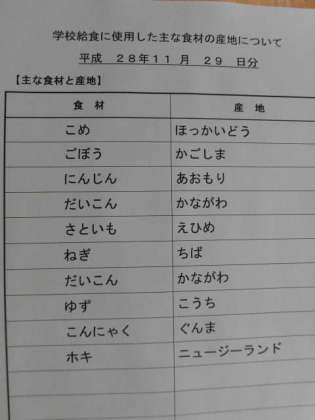 学校給食に使用した主な食材の産地について
平成 28年11 月 29 日分
【主な食材と産地】
食 材 産 地
こめ ほっかいどう
ごぼう かごしま
にんじん あおもり
だいこん かながわ
さといも えひめ
ねぎ ちば
だいこん かながわ
ゆず こうち
こんにゃく ぐんま
ホキ ニュージーランド